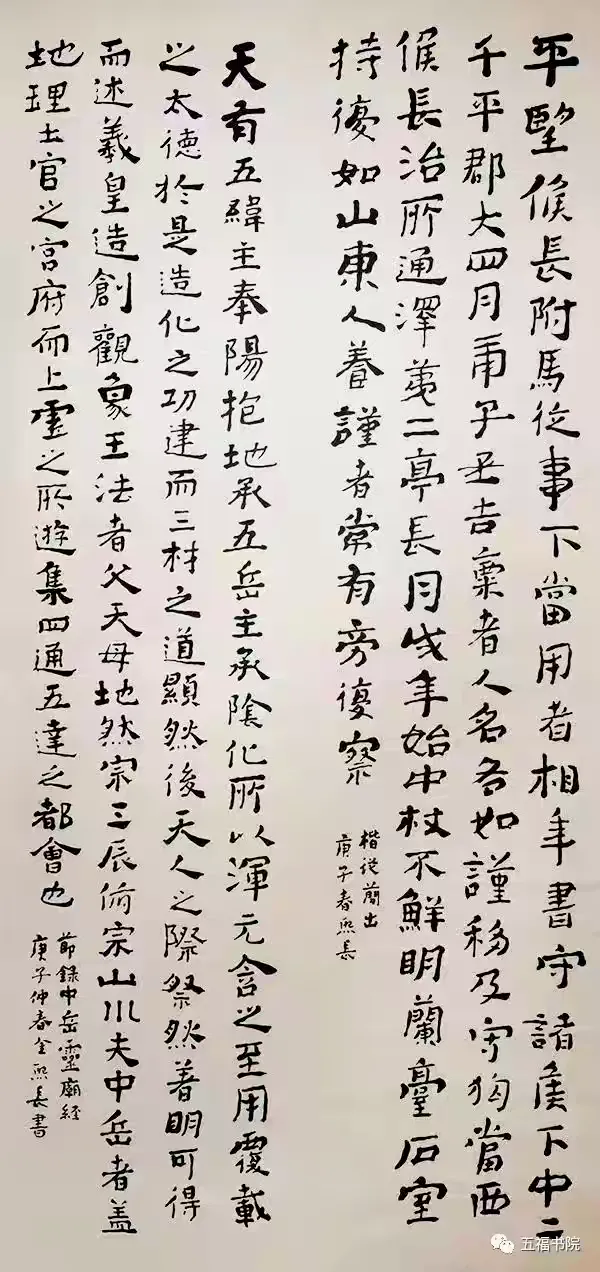 平望候長附馬從事下當用者相年書守諸侯下中二
千平郡大四月甫子丑吉稟者人名各如謹移及守狗當西
候長治所通澤第二亭長月戍年始中杖不鮮明蘭臺石室
持復如山東人養謹者常有旁復察
楷從簡出
庚子春熙長
天有五緯主奉陽抱地承五岳主承陰化所以渾元含之至用覆載
之太德於是造化之功建而三材之道顯然後天人之際祭然著明可得
而述羲皇造創觀象王法者父天母地然宗三辰俯宗山川夫中岳者盖
地理土官之宮府而上靈之所遊集四通五達之都會也
節錄中岳靈廟経
庚子仲春全熙長書
五福书院